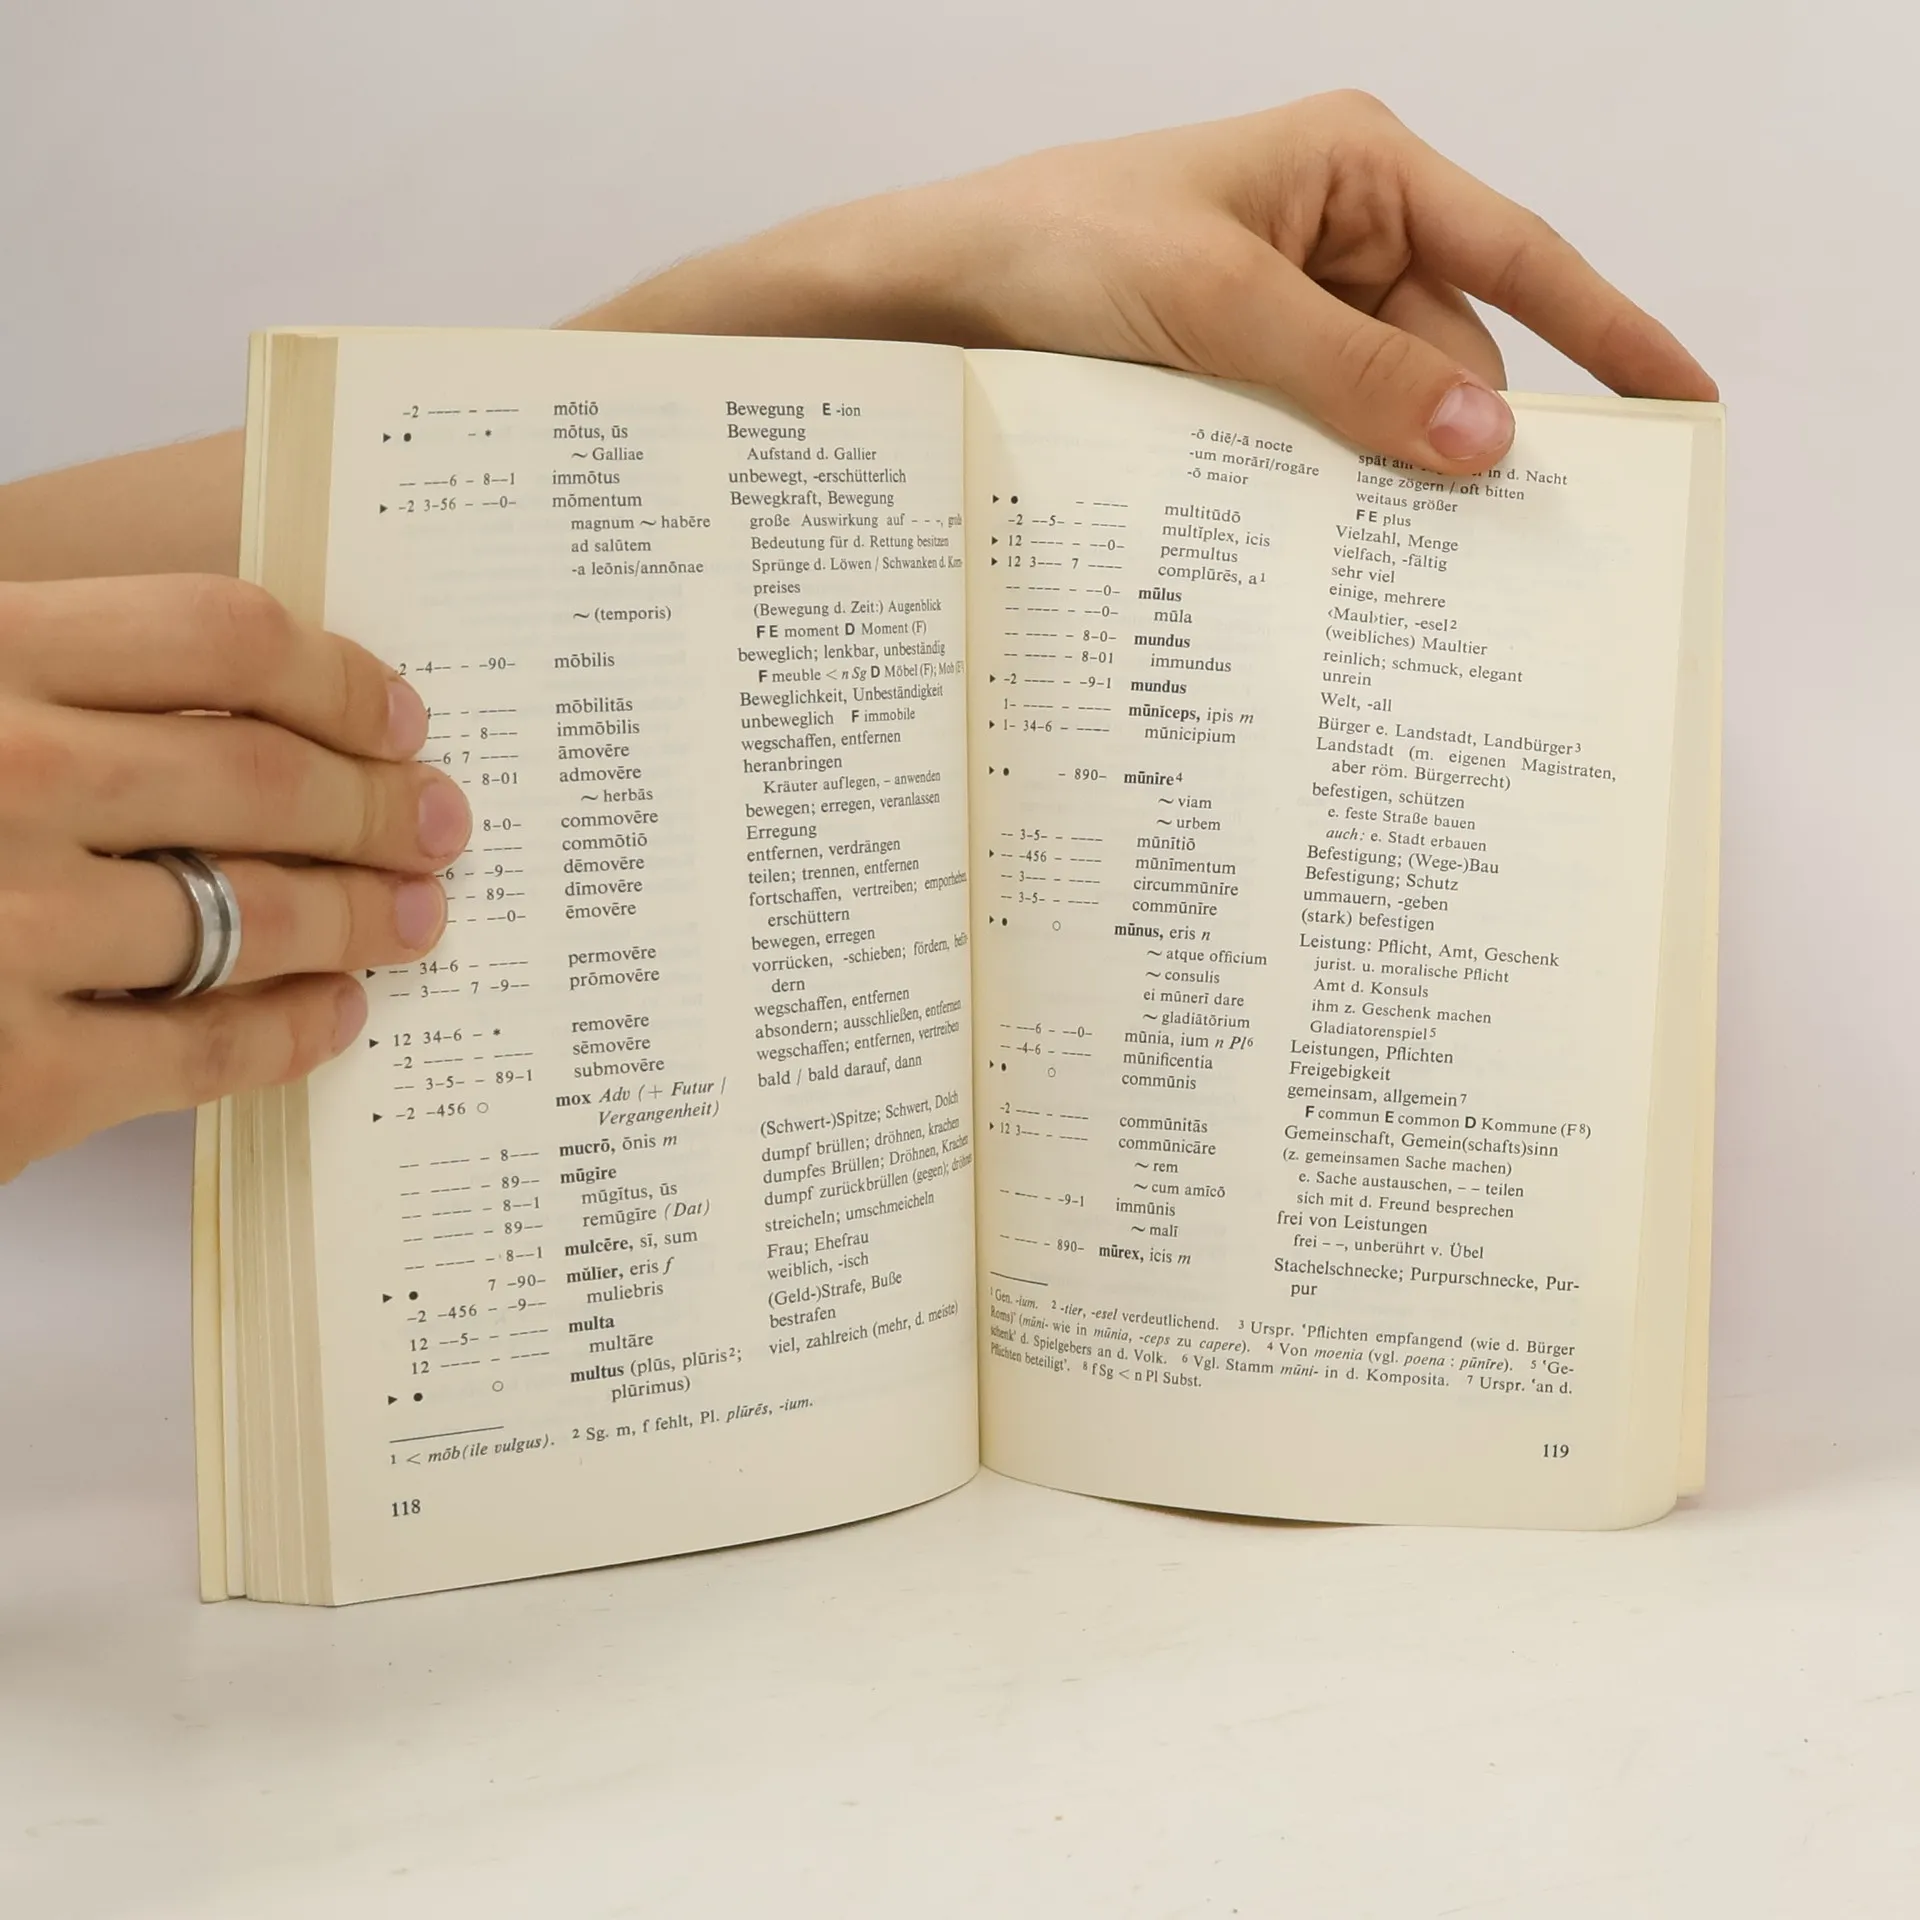 -2 ---- - ---- mōtiō Bewegung E -ion
▶ ● - * mōtus, ūs Bewegung
~ Galliae Aufstand d. Gallier
-- ---6 - 8--1 immōtus unbewegt, -erschütterlich
▶ -2 3-56 - --0- mōmentum Bewegkraft, Bewegung
magnum ~ habēre große Auswirkung auf - - -,
ad salūtem Bedeutung für d. Rettung besitzen
-a leōnis/annōnae Sprünge d. Löwen / Schwanken d.
preises
~ (temporis) (Bewegung d. Zeit:) Augenblick
F E moment D Moment (F)
-2 -4-- - -90- mōbilis beweglich; lenkbar, unbeständig
F meuble < n Sg D Möbel (F); Mob
- ---- mōbilitās Beweglichkeit, Unbeständigkeit
- 8--- immōbilis unbeweglich F immobile
--6 7 ---- āmovēre wegschaffen, entfernen
- 8-01 admovēre heranbringen
~ herbās Kräuter auflegen, – anwenden
8-0- commovēre bewegen; erregen, veranlassen
---- commōtiō Erregung
-6 - -9-- dēmovēre entfernen, verdrängen
- 89-- dīmovēre teilen; trennen, entfernen
- --0- ēmovēre fortschaffen, vertreiben; emporheben
erschüttern
▶ -- 34-6 - ---- permovēre bewegen, erregen
-- 3--- 7 -9-- prōmovēre vorrücken, -schieben; fördern,
dern
▶ 12 34-6 - * removēre wegschaffen, entfernen
-2 ---- - ---- sēmovēre absondern; ausschließen, entfernen
-- 3-5- - 89-1 submovēre wegschaffen; entfernen, vertreiben
▶ -2 -456 ○ mox Adv (+ Futur / bald / bald darauf, dann
Vergangenheit)
-- ---- - 8--- mucrō, ōnis m (Schwert-)Spitze; Schwert, Dolch
-- ---- - 89-- mūgīre dumpf brüllen; dröhnen, krachen
-- ---- - 8--1 mūgītus, ūs dumpfes Brüllen; Dröhnen, Krachen
-- ---- - 89-- remūgīre (Dat) dumpf zurückbrüllen (gegen);
-- ---- - 8--1 mulcēre, sī, sum streicheln; umschmeicheln
▶ ● 7 -90- mŭlier, eris f Frau; Ehefrau
-2 -456 - -9-- muliebris weiblich, -isch
12 --5- - ---- multa (Geld-)Strafe, Buße
12 ---- - ---- multāre bestrafen
▶ ● ○ multus (plūs, plūris²; viel, zahlreich (mehr, d. meiste)
plūrimus)
1 < mōb(ile vulgus). 2 Sg. m, f fehlt, Pl. plūrēs, -ium.
118
-ō diē/-ā nocte spät in d. Nacht
-um morārī/rogāre lange zögern / oft bitten
-ō maior weitaus größer
F E plus
▶ ● - ---- multitūdō Vielzahl, Menge
-2 --5- - ---- multiplex, icis vielfach, -fältig
▶ 12 ---- - --0- permultus sehr viel
▶ 12 3--- 7 ---- complūrēs, a¹ einige, mehrere
-- ---- - --0- mūlus ‹Maul›tier, -esel²
-- ---- - --0- mūla (weibliches) Maultier
-- ---- - 8-0- mundus reinlich; schmuck, elegant
-- ---- - 8-01 immundus unrein
▶ -2 ---- - -9-1 mundus Welt, -all
1- ---- - ---- mūniceps, ipis m Bürger e. Landstadt, Landbürger³
▶ 1- 34-6 - ---- mūnicipium Landstadt (m. eigenen Magistraten,
aber röm. Bürgerrecht)
▶ ● - 890- mūnīre⁴ befestigen, schützen
~ viam e. feste Straße bauen
~ urbem auch: e. Stadt erbauen
-- 3-5- - ---- mūnītiō Befestigung; (Wege-)Bau
▶ -- -456 - ---- mūnīmentum Befestigung; Schutz
-- 3--- - ---- circummūnīre ummauern, -geben
-- 3-5- - ---- commūnīre (stark) befestigen
▶ ● ○ mūnus, eris n Leistung: Pflicht, Amt, Geschenk
~ atque officium jurist. u. moralische Pflicht
~ consulis Amt d. Konsuls
ei mūnerī dare ihm z. Geschenk machen
~ gladiātōrium Gladiatorenspiel⁵
-- ---6 - --0- mūnia, ium n Pl⁶ Leistungen, Pflichten
-- -4-6 - ---- mūnificentia Freigebigkeit
▶ ● ○ commūnis gemeinsam, allgemein⁷
F commun E common D Kommune (F⁸)
-2 ---- - ---- commūnitās Gemeinschaft, Gemein(schafts)sinn
▶ 12 3--- - ---- commūnicāre (z. gemeinsamen Sache machen)
~ rem e. Sache austauschen, – – teilen
~ cum amīcō sich mit d. Freund besprechen
-- ---- - -9-1 immūnis frei von Leistungen
~ malī frei – –, unberührt v. Übel
-- ---- - 890- mūrex, icis m Stachelschnecke; Purpurschnecke, Pur-
pur
1 Gen. -ium. 2 -tier, -esel verdeutlichend. 3 Urspr. 'Pflichten empfangend (wie d. Bürger
Roms)' (mūni- wie in mūnia, -ceps zu capere). 4 Von moenia (vgl. poena : pūnīre). 5 'Ge-
schenk' d. Spielgebers an d. Volk. 6 Vgl. Stamm mūni- in d. Komposita. 7 Urspr. 'an d.
Pflichten beteiligt'. 8 f Sg < n Pl Subst.
119